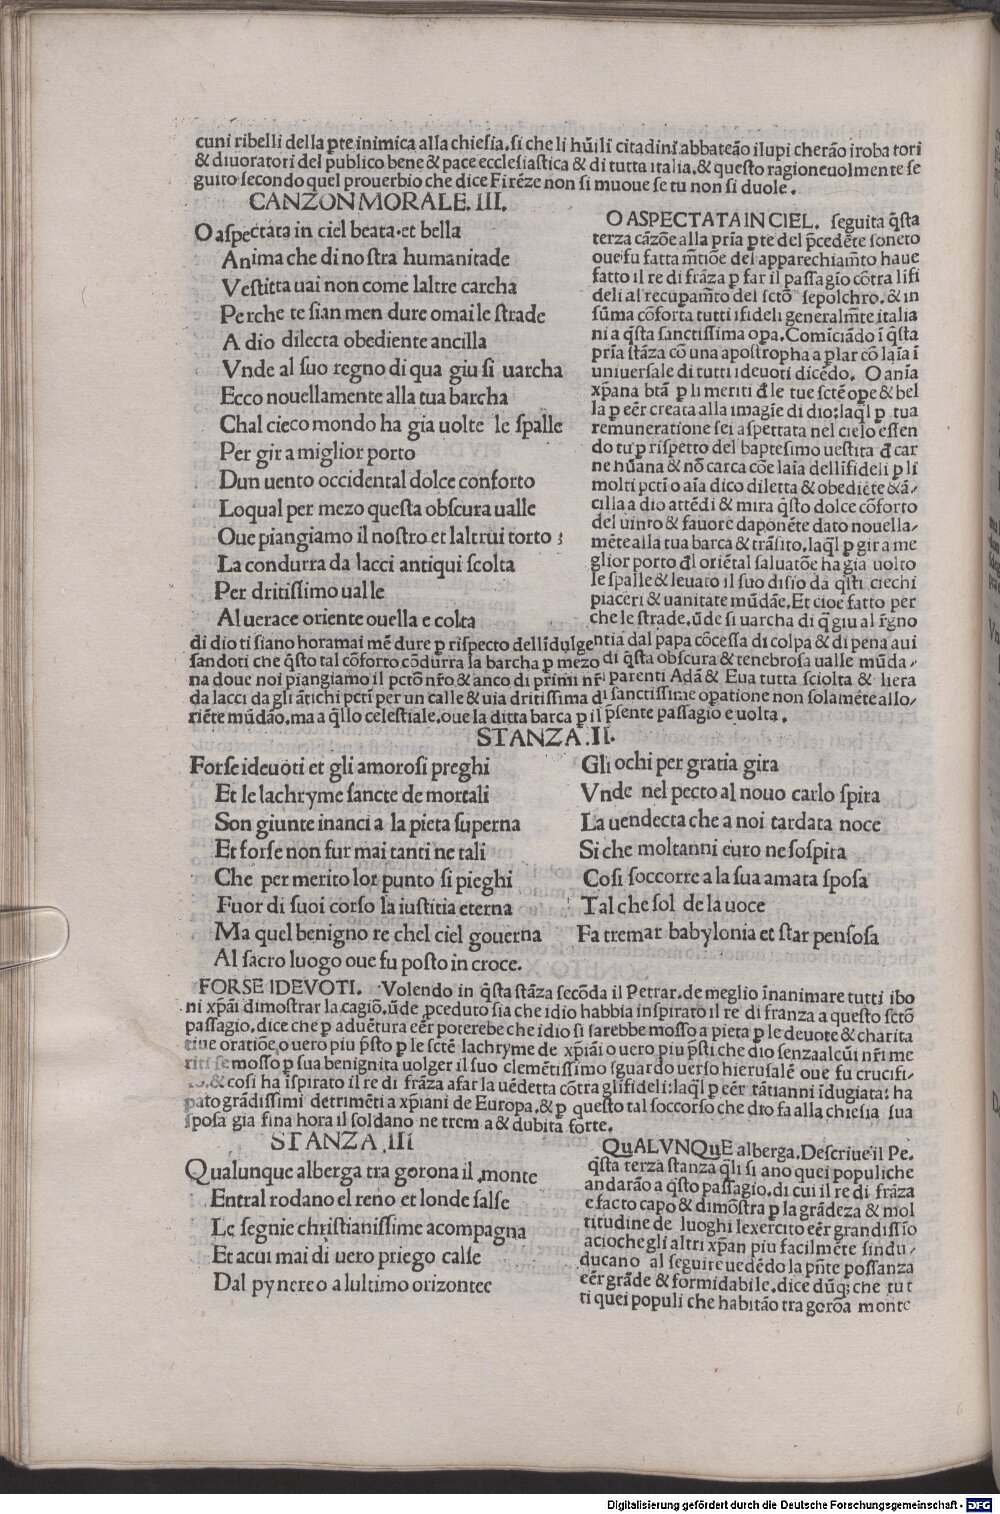 cuni ribelli della ꝑte inimica alla chiesia. si che li hũili citadini abbateão ilupi cherão iroba tori
& diuoratori del publico bene & pace ecclesiastica & di tutta italia. & questo ragioneuolmente se
guito secondo quel prouerbio che dice Firẽze non si muoue se tu non si duole.
CANZON MORALE. III.
O aspectata in ciel beata. et bella
Anima che di nostra humanitade
Vestitta uai non come laltre carcha
Perche te sian men dure omai le strade
A dio dilecta obediente ancilla
Vnde al suo regno di qua giu si uarcha
Ecco nouellamente alla tua barcha
Chal cieco mondo ha gia uolte le spalle
Per gir a miglior porto
Dun uento occidental dolce conforto
Loqual per mezo questa obscura ualle
Oue piangiamo il nostro et laltrui torto ;
La condurra da lacci antiqui scolta
Per dritissimo ualle
Al uerace oriente ouella e colta
O ASPECTATA IN CIEL. seguita q̃sta
terza cãzõe alla pria ꝑte del p̃cedẽte soneto
oue fu fatta mẽtiõe del apparechiamẽto haue
fatto il re di frãza ꝑ far il passagio cõtra lifi
deli al recupamẽto del sctõ sepolchro. & in
sũma cõforta tutti ifideli generalmẽte italia
ni a q̃sta sanctissima opa. Comĩciãdo ĩ q̃sta
pria stãza cõ una apostropha a plar cõ laĩa ĩ
uniuersale di tutti ideuoti dicẽdo. O anĩa
xp̃ana btã ꝑ li meriti đ le tue sctẽ ope & bel
la ꝑ eẽr creata alla imagĩe di dio: laq̃l ꝑ tua
remuneratione sei aspettata nel cielo essen
do tu ꝑ rispetto del baptesimo uestita đ car
ne hũana & nõ carca cõe laĩa dellĩfideli ꝑ li
molti pctĩ o aĩa dico diletta & obediẽte & ã/
cilla a dio attẽdi & mira q̃sto dolce cõforto
del uinto & fauore daponẽte dato nouella/
mẽte alla tua barca & trãsito. laq̃l ꝑ gir a me
glior porto đl oriẽtal saluatõe ha gia uolto
le spalle & leuato il suo disio da q̃sti ciechi
piaceri & uanitate mũdãe. Et cioe fatto per
che le strade. ũde si uarcha di q̃ giu al r̃gno
di dio ti siano horamai mẽ dure ꝑ rispecto dellĩdulgentia dal papa cõcessa di colpa & di pena aui
sandoti che q̃sto tal cõforto cõdurra la barcha ꝑ mezo di q̃sta obscura & tenebrosa ualle mũda/
na doue noi piangiamo il pctõ nr̃o & anco di primi nr̃i parenti Adã & Eua tutta sciolta & liera
da lacci da gli ãtichi pctĩ per un calle & uia dritissima di sanctissime opatione non solamẽte allo/
riẽte mũdão. ma a q̃llo celestiale. oue la ditta barca ꝑ il p̃sente passagio e uolta.
STANZA. II.
Forse ideuoti et gli amorosi preghi
Et le lachryme sancte de mortali
Son giunte inanci a la pieta superna
Et forse non fur mai tanti ne tali
Che per merito lor punto si pieghi
Fuor di suoi corso la iustitia eterna
Ma quel benigno re chel ciel gouerna
Al sacro luogo oue fu posto in croce.
Gli ochi per gratia gira
Vnde nel pecto al nouo carlo spira
La uendecta che a noi tardata noce
Si che moltanni euro ne sospira
Cosi soccorre a la sua amata sposa
Tal che sol de la uoce
Fa tremar babylonia et star pensosa
FORSE IDEVOTI. Volendo in q̃sta stãza secõda il Petrar. de meglio ĩnanimare tutti ibo
ni xp̃ãi dimostrar la cagiõ. ũde p̃ceduto sia che idio habbia ĩnspirato il re di franza a questo sctõ
passagio. dice che ꝑ aduẽtura eẽr poterebe che idio si sarebbe mosso a pieta ꝑ le deuote & charita
tiue oratiõe o uero piu p̃sto ꝑ le sctẽ lachryme de xp̃iãi o uero piu p̃sti che dio senzaalcũi nr̃i me
riti se mosso ꝑ sua benignita uolger il suo clemẽtissimo sguardo uerso hierusalẽ oue fu crucifi-
& cosi ha ĩspirato il re di frãza a far la uẽdetta cõtra glĩfideli: laq̃l ꝑ eẽr tãtianni ĩdugiata: ha
pato grãdissimi detrimẽti a xp̃iani de Europa. & ꝑ questo tal soccorso che dio fa alla chiesia sua
sposa gia fina hora il soldano ne trem a & dubita forte.
STANZA. III
Qualunque alberga tra gorona il monte
Entral rodano el reno et londe salse
Le segnie christianissime acompagna
Et acui mai di uero priego calse
Dal pynereo a lultimo orizontee
QuALVNQuE alberga. Descriue il Pe.
q̃sta terza stanza q̃li si ano quei populi che
andarão a q̃sto passagio. di cui il re di frãza
e facto capo & dimõstra ꝑ la grãdeza & mol
titudine de luoghi lexercito eẽr grandissio
acioche gli altri xp̃ian piu facilmẽte sindu/
ducano al seguire uedẽdo la pñte possanza
eẽr grãde & formidabile. dice dũq; che tut
ti quei populi che habitão tra gorõa monte
Digitalisierung gefördert durch die Deutsche Forschungsgemeinschaft - DFG